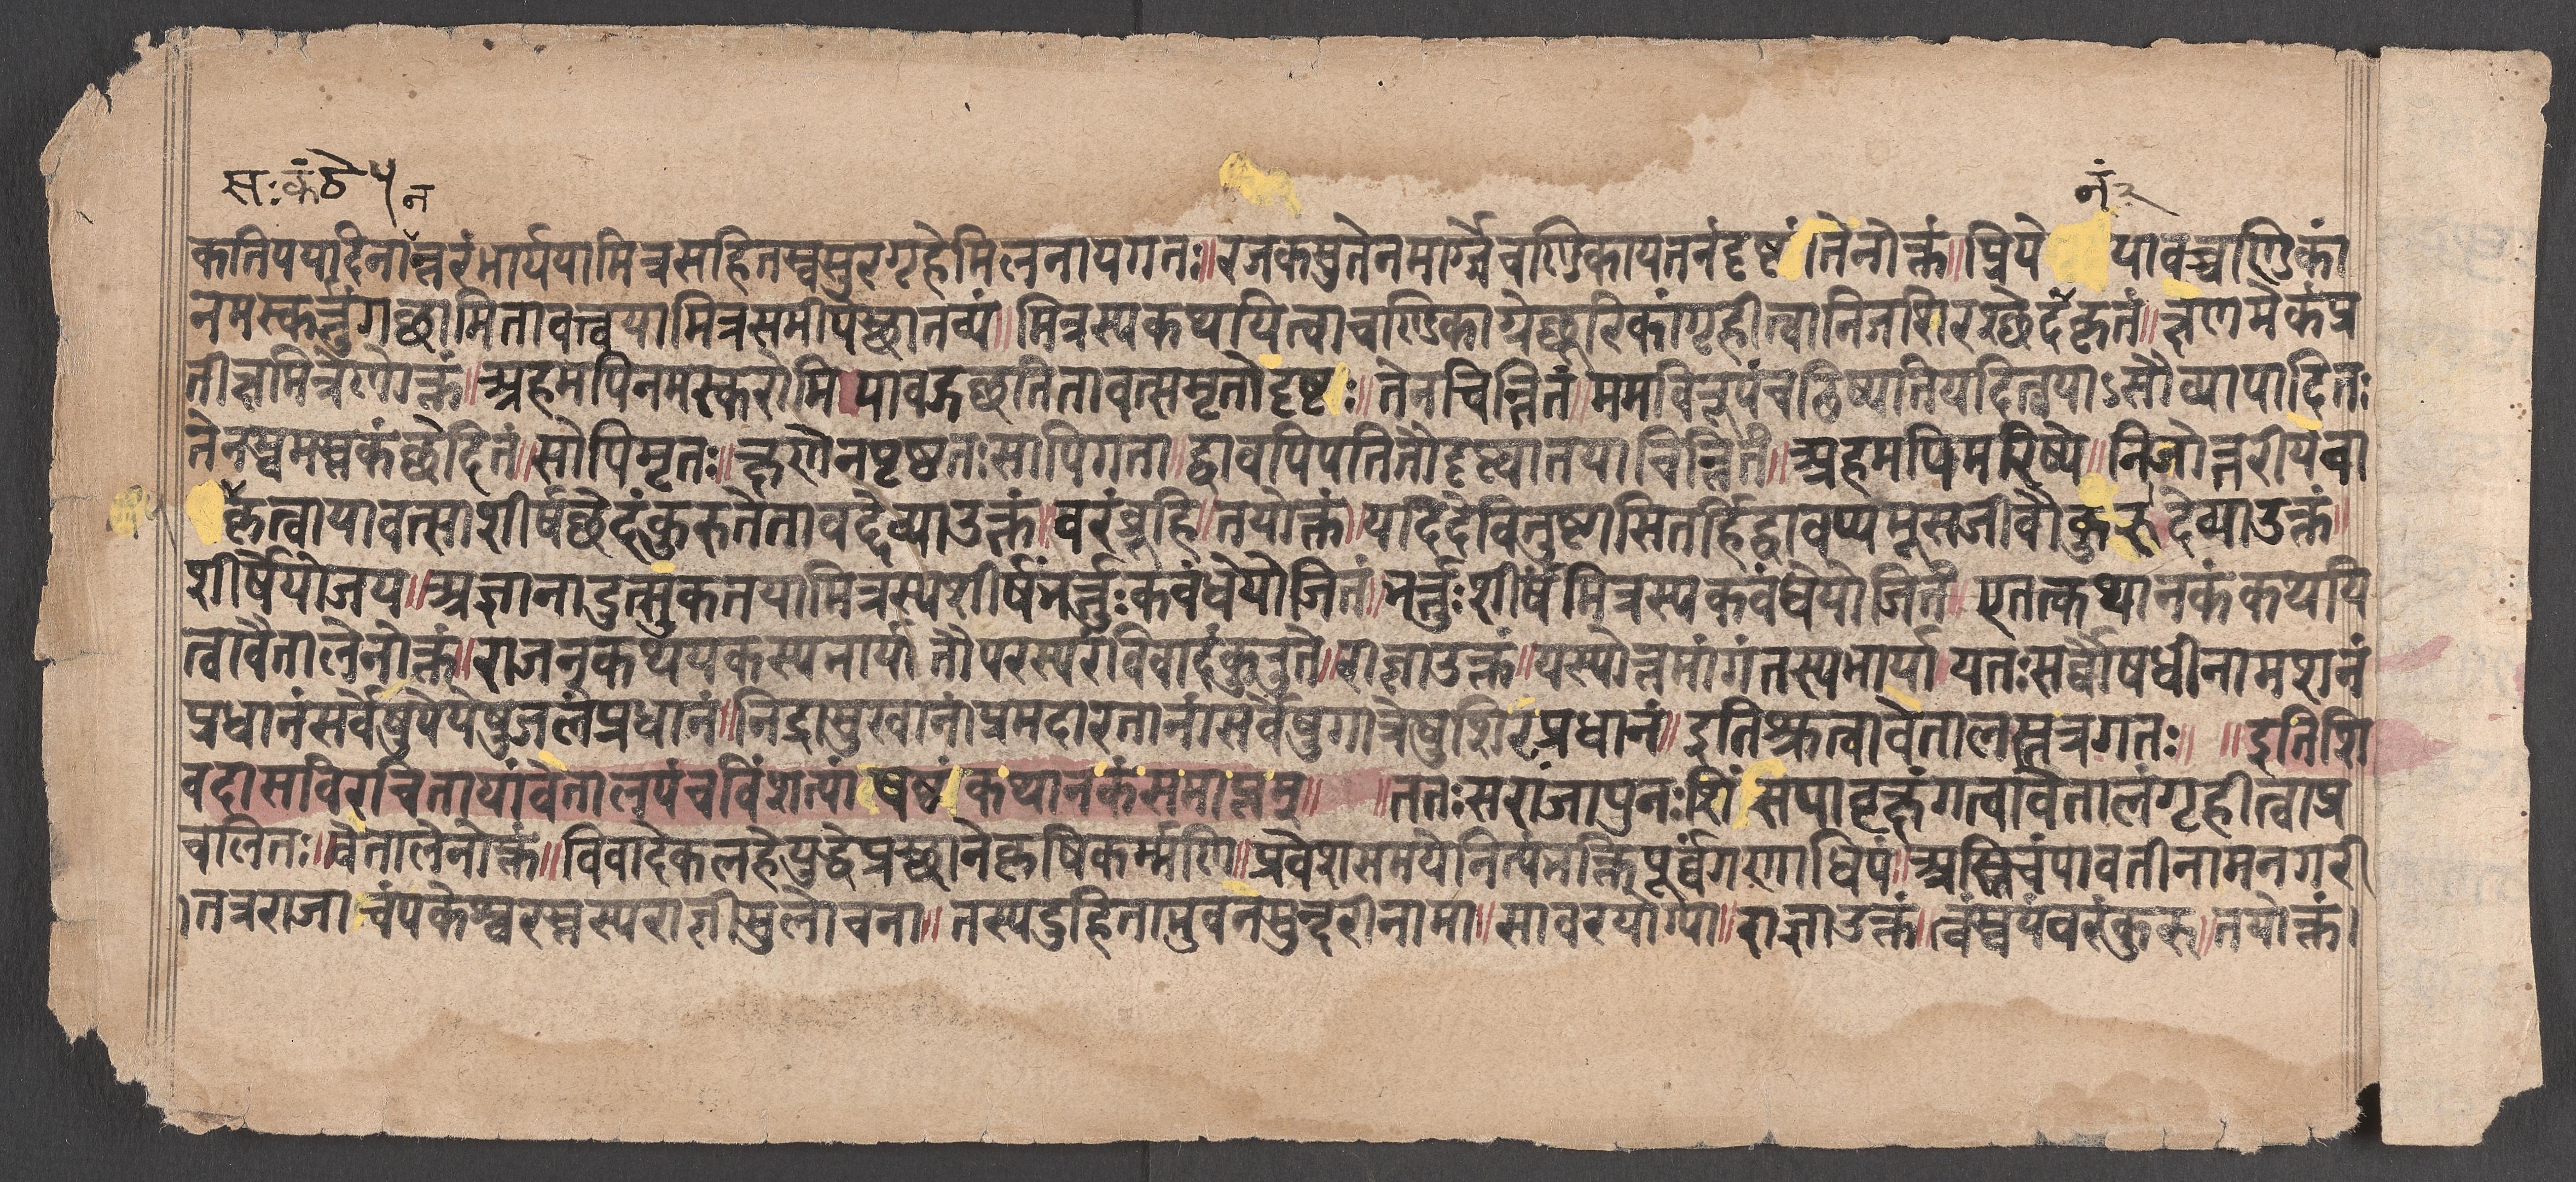 सःकंठे ५ त
तं२
कतिपयदिनान्तरंभार्ययामित्रसहितस्वसुरगृहेमिलनायगतः॥रजकसुतेनमार्ग्गेचण्डिकायतनंदृष्टं।तेनोक्तं॥प्रिये यावच्चण्डिकां
नमस्कर्त्तुंगच्छामितावत्त्वयामित्रसमीपेस्थातव्यं॥मित्रस्यकथयित्वाचण्डिकाग्रेछुरिकांगृहीत्वानिजशिरश्छेदंकृतं॥क्षणमेकंप्र
तीक्षमित्रेणोक्तं॥अहमपिनमस्करोमि यावद्गच्छतितावत्समृतोदृष्टः॥तेनचिन्तितं॥ममविरूपंचटिष्यतियदित्वयाऽसौव्यापादितः
तेनस्वमस्तकंछेदितं॥सोपिमृतः॥क्षणेनपृष्ठतःसापिगता॥द्वावपिपतितौदृष्ट्वातयाचिन्तितं॥अहमपिमरिष्ये॥निजोत्तरीयेबा
हृत्वायावत्साशीर्षछेदंकुरुतेतावद्देव्याउक्तं॥वरंब्रूहि॥तयोक्तं॥यदिदेवितुष्टासितर्हिद्वावप्यमूसजीवौकुरु॥देव्याउक्तं॥
शीर्षेयोजय॥अज्ञानादुत्सुकतयामित्रस्यशीर्षंभर्त्तुःकबंधेयोजितं॥भर्त्तुःशीर्षंमित्रस्यकबंधेयोजितं॥एतत्कथानकंकथयि
त्वावेतालेनोक्तं॥राजन्कथयकस्यनार्या॥तौपरस्परंविवादंकुरुतै॥राज्ञाउक्तं॥यस्योत्तमांगंतस्यभार्या॥यतःसर्व्वौषधीनामशनं
प्रधानंसर्वेषुपेयेषुजलंप्रधानं॥निद्रासुखानांप्रमदारतानांसर्वेषुगात्रेषुशिरंप्रधानं॥इतिश्रुत्वावेतालस्तत्रगतः॥ ॥इतिशि
वदासविरचितायांवेतालपंचविंशत्यां षष्ठं कथानकंसमाप्तम्॥ ॥ततःसराजापुनःशिंसपावृक्षंगत्वावेतालंगृहीत्वाप्र
चलितः॥वेतालेनोक्तं॥विवादेकलहेयुद्धेप्रस्थानेकृषिकर्म्मणि॥प्रवेशसमयेनित्यंभक्तिपूर्व्वंगणाधिपं॥अस्तिचंपावतीनामनगरी
।तत्रराजा चंपकेश्वरस्तस्यराज्ञीसुलोचना॥तस्यदुहिताभुवनसुन्दरीनामा॥सावरयोग्या॥राज्ञाउक्तं॥त्वंस्वयंवरंकुरु॥तयोक्तं।